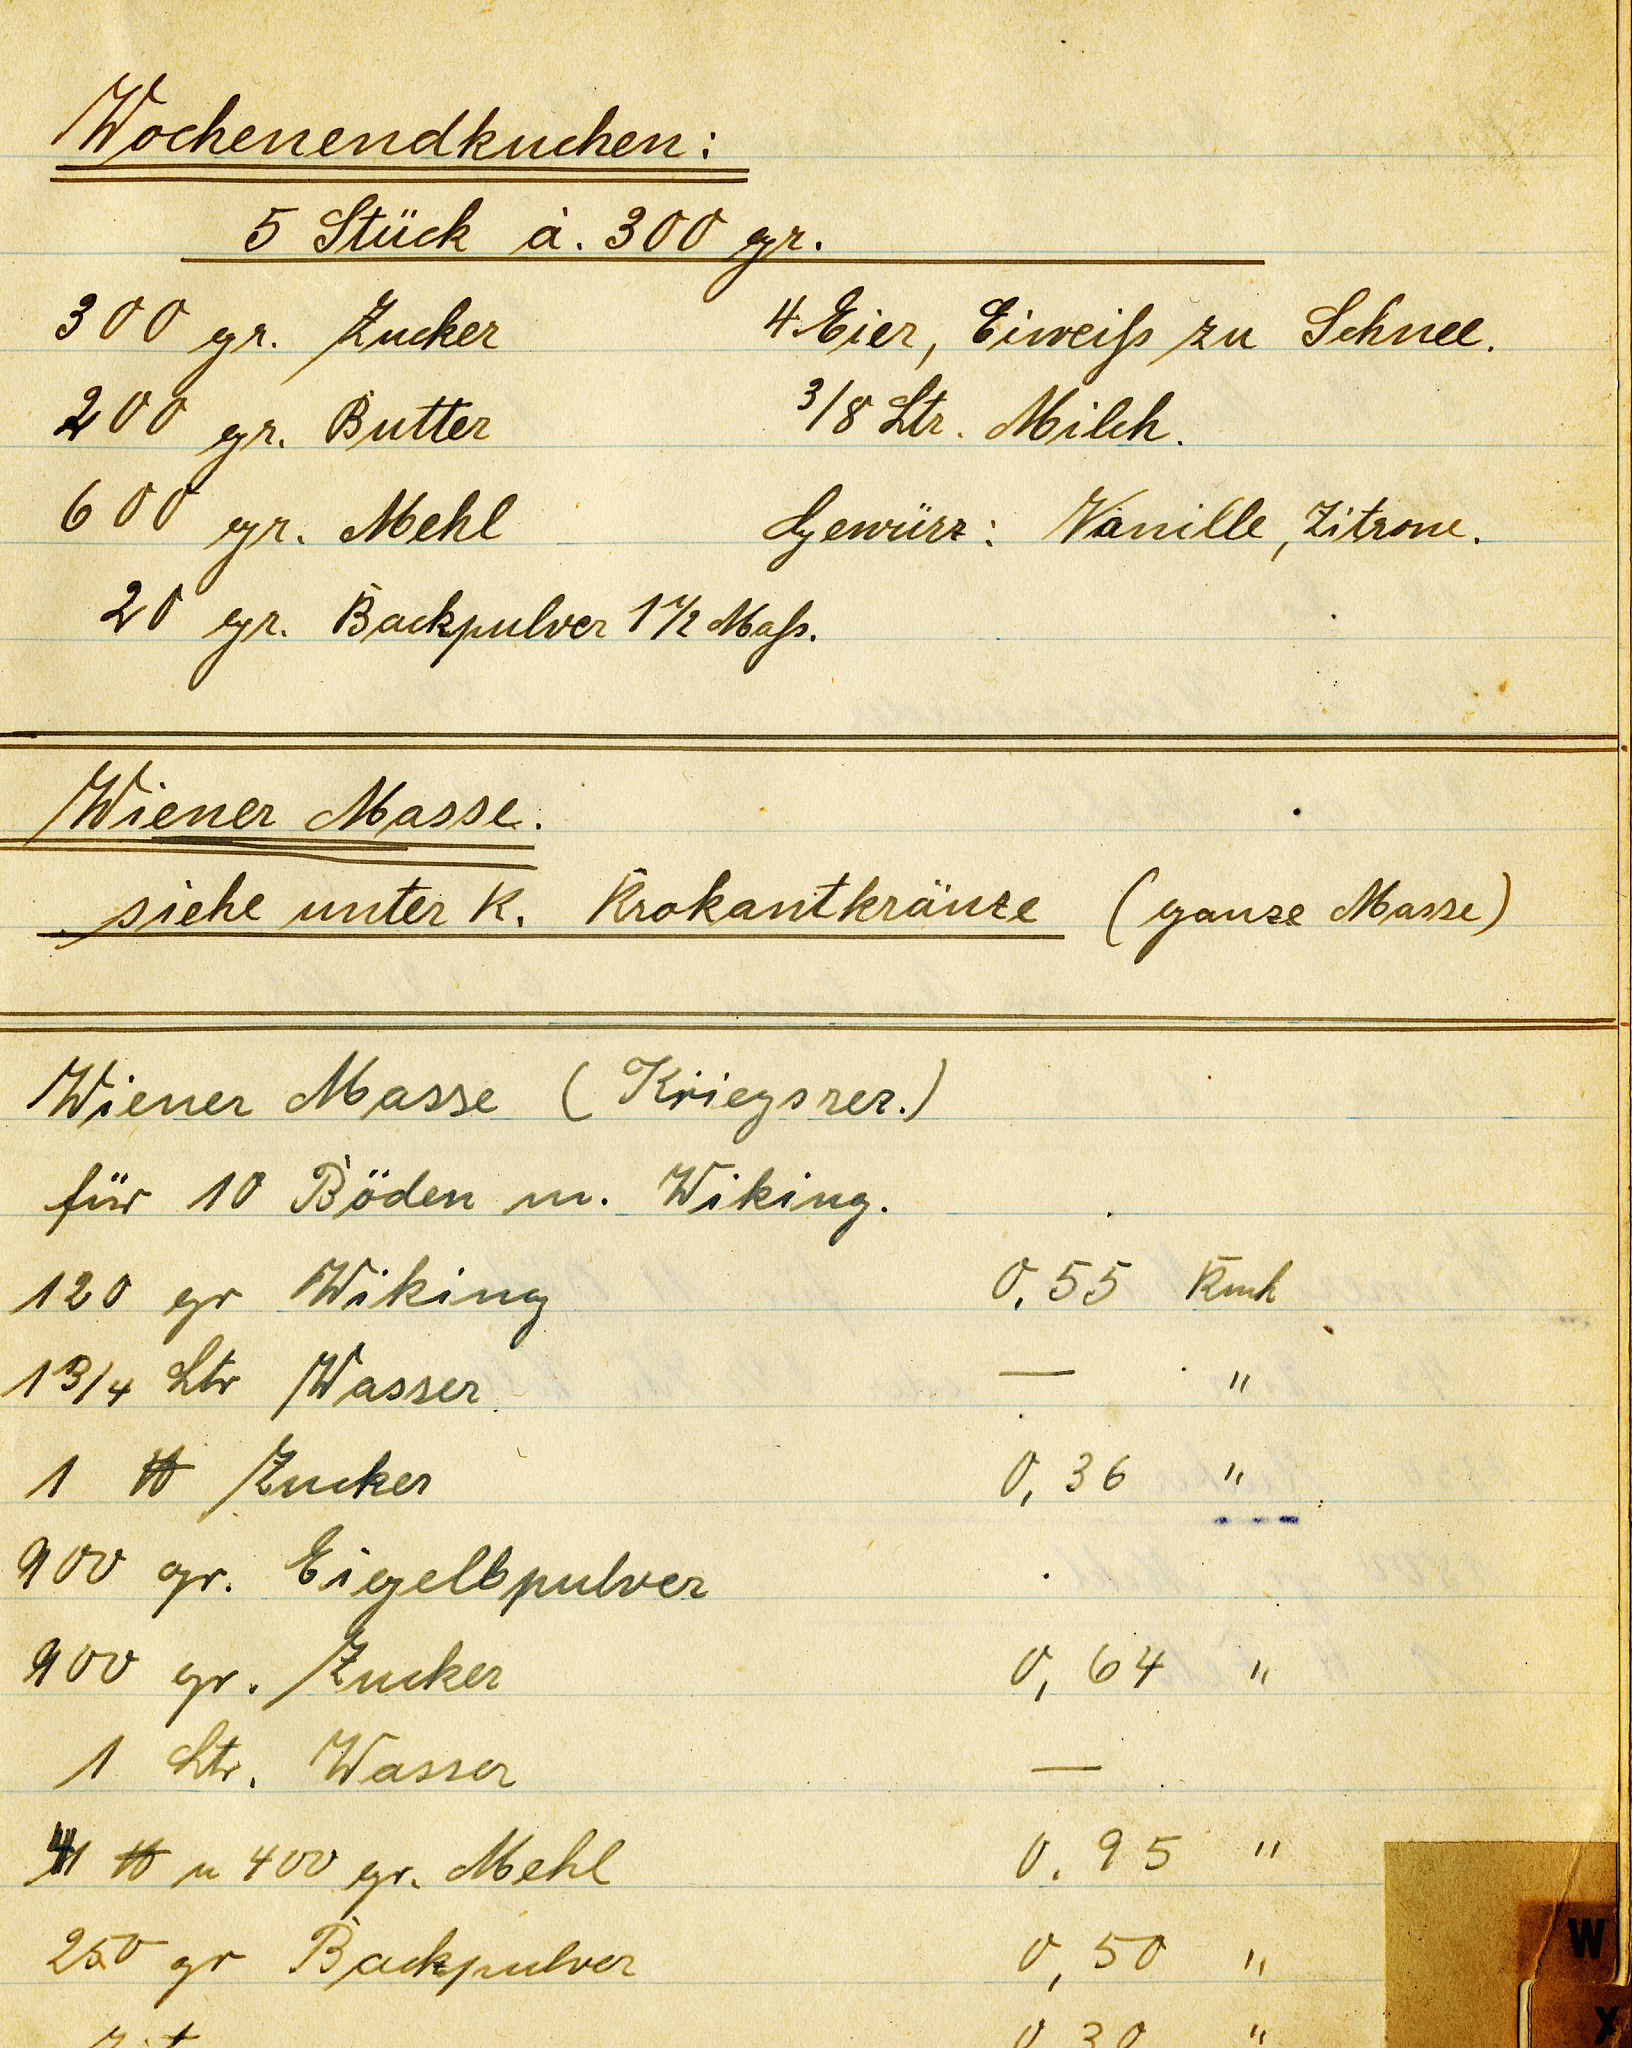 Wochenendkuchen:
5 Stück à. 300 gr.
300 gr. Zucker 4 Eier, Eiweiß zu Schnee.
200 gr. Butter 3/8 Ltr. Milch.
600 gr. Mehl Gewürz: Vanille, Zitrone.
20 gr. Backpulver 1 1/2 Maß.
Wiener Masse.
siehe unter K. Krokantkränze (ganze Masse)
Wiener Masse (Kriegsrez.)
für 10 Böden m. Wiking.
120 gr Wiking 0,55 Rmk
1 3/4 Ltr Wasser — "
1 ℔ Zucker 0,36 "
900 gr. Eigelbpulver
900 gr. Zucker 0,64 "
1 Ltr. Wasser —
4 ℔ u 400 gr. Mehl 0.95 "
250 gr Backpulver 0,50 "
0,30 "
W
X